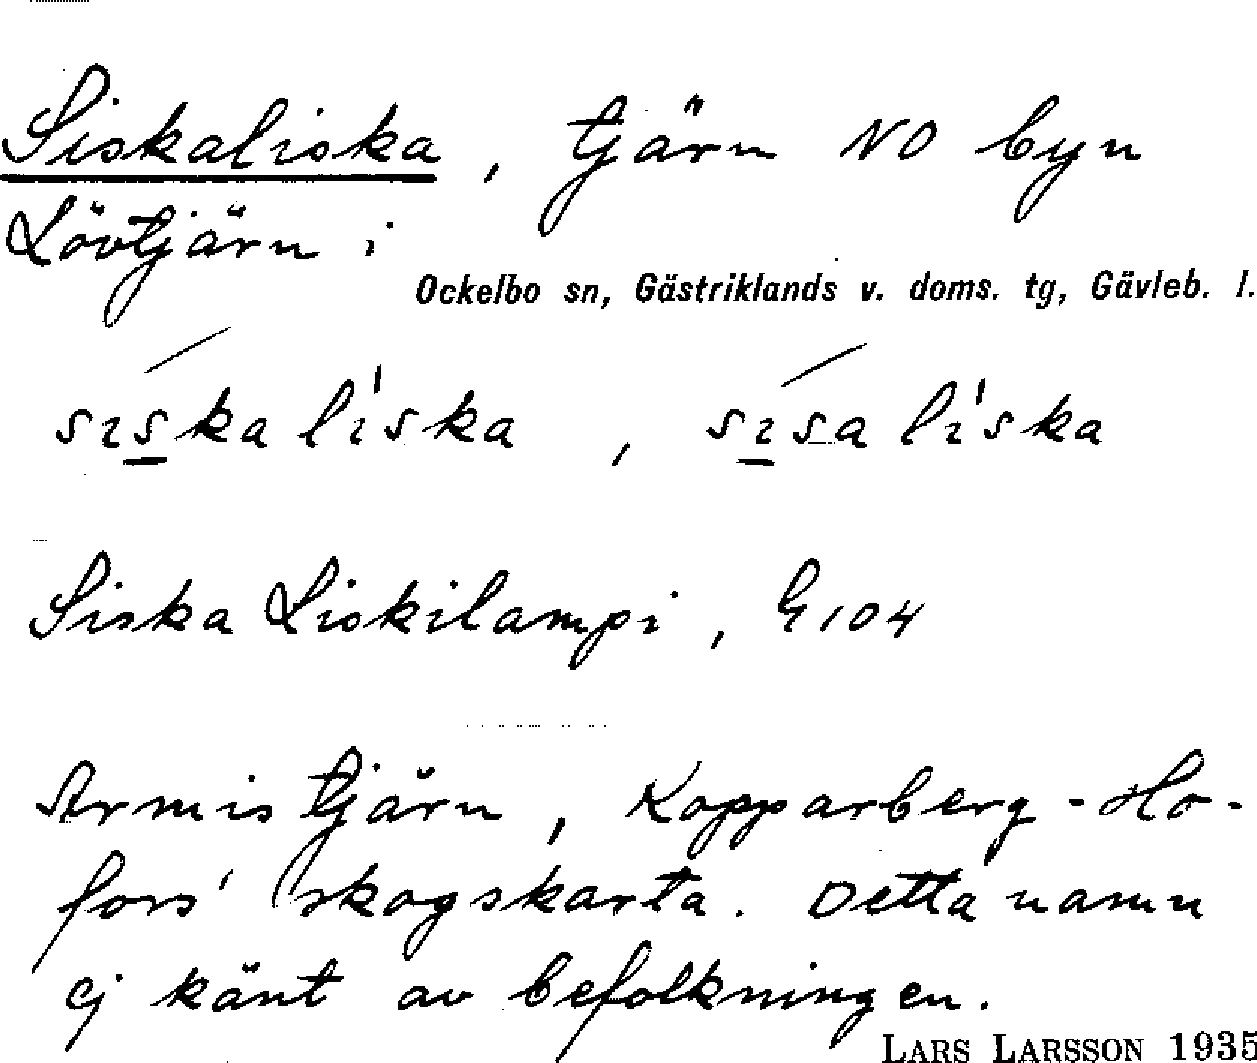 Siskaliska, tjärn NO byn
Lövtjärn i
Ockelbo sn, Gästriklands v. doms. tg, Gävleb. l.
sıska lıska, sısa lıska
Siska Liskilampi, G 104
Armistjärn, Kopparberg-Ho-
fors' skogskarta. Detta namn
ej känt av befolkningen.
LARS LARSSON 1935